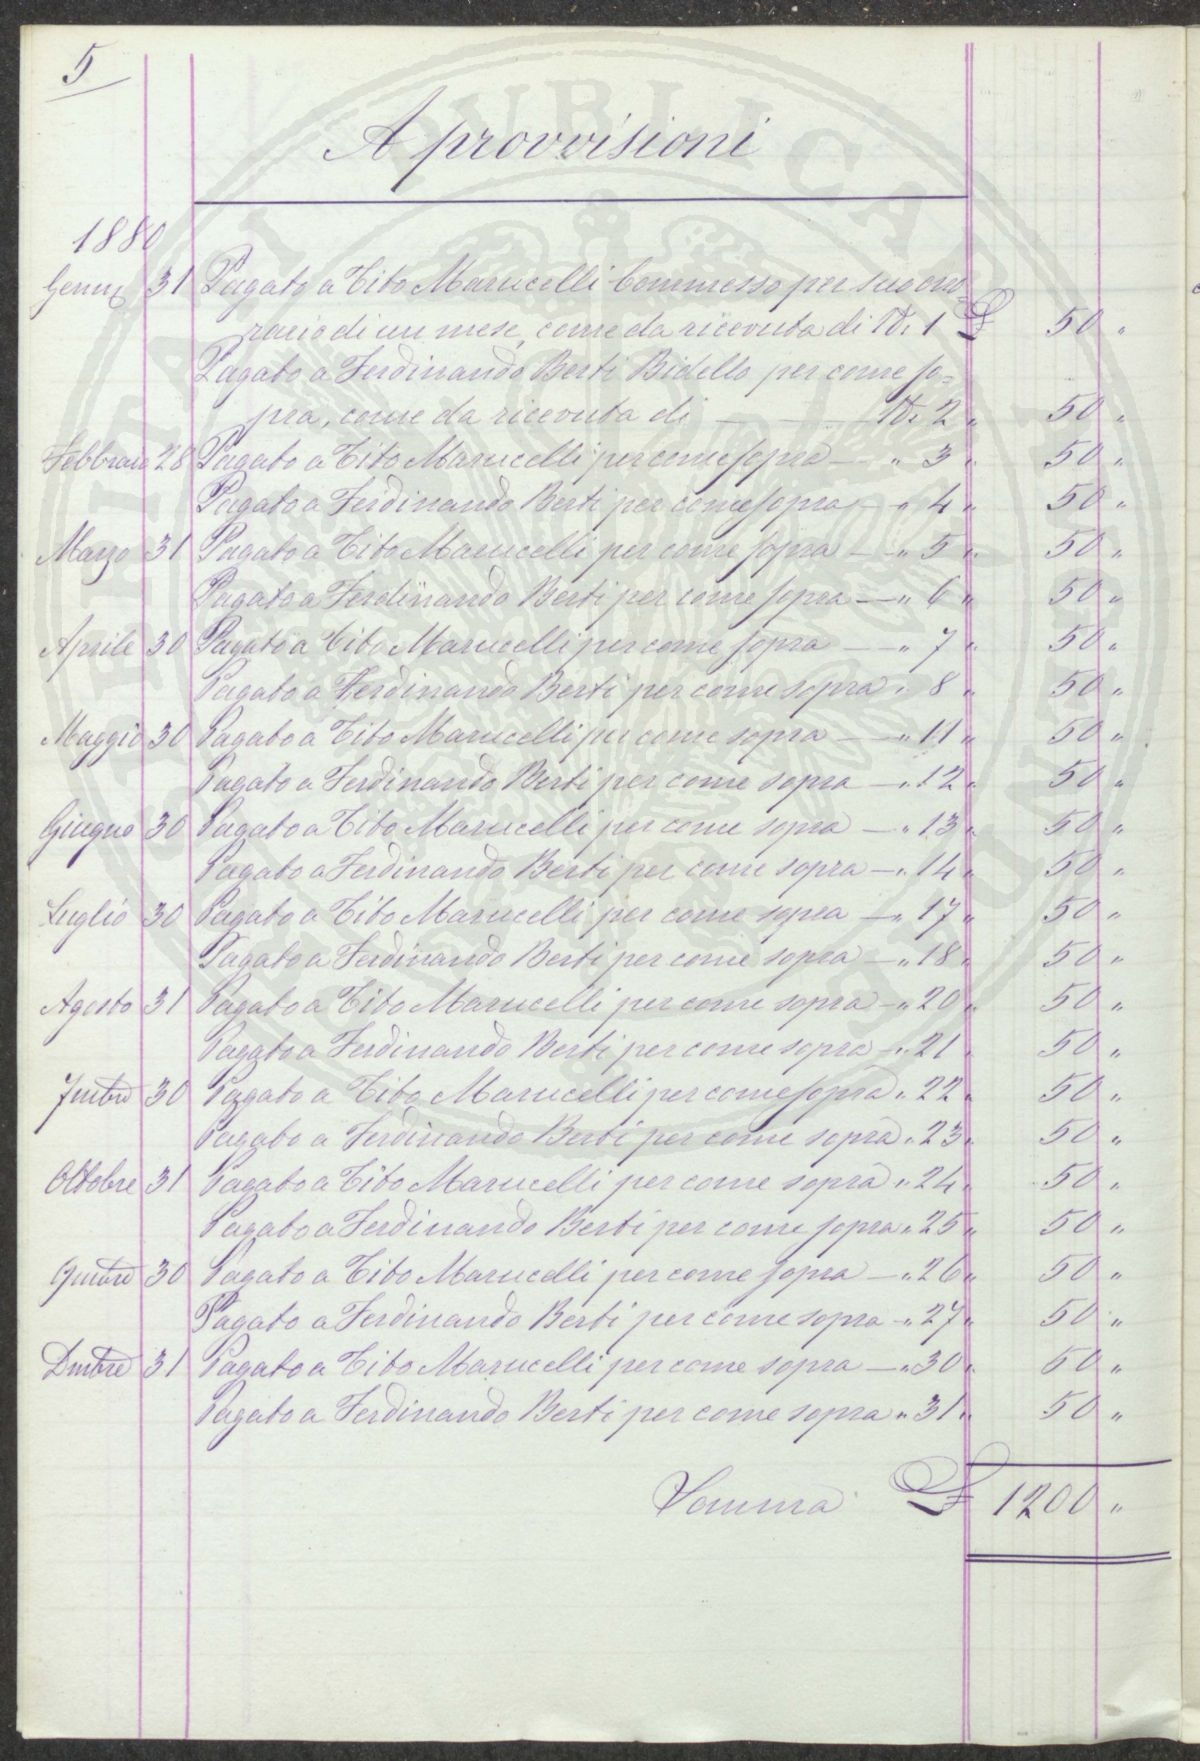 5
A provvisioni
1880
Genn° 31 Pagato a Tito Marucelli Commesso per suo ono=
rario di un mese, come da ricevuta di N. 1 £ 50 "
Pagato a Ferdinando Berti Bidello per come so=
pra, come da ricevuta di — N. 2 " 50 "
Febbraio 28 Pagato a Tito Marucelli per come sopra — " 3 " 50 "
Pagato a Ferdinando Berti per come sopra — " 4 " 50 "
Marzo 31 Pagato a Tito Marucelli per come sopra — " 5 " 50 "
Pagato a Ferdinando Berti per come sopra — " 6 " 50 "
Aprile 30 Pagato a Tito Marucelli per come sopra — " 7 " 50 "
Pagato a Ferdinando Berti per come sopra " 8 " 50 "
Maggio 30 Pagato a Tito Marucelli per come sopra — " 11 " 50 "
Pagato a Ferdinando Berti per come sopra — " 12 " 50 "
Giugno 30 Pagato a Tito Marucelli per come sopra — " 13 " 50 "
Pagato a Ferdinando Berti per come sopra — " 14 " 50 "
Luglio 30 Pagato a Tito Marucelli per come sopra — " 17 " 50 "
Pagato a Ferdinando Berti per come sopra — " 18 " 50 "
Agosto 31 Pagato a Tito Marucelli per come sopra — " 20 " 50 "
Pagato a Ferdinando Berti per come sopra — " 21 " 50 "
7mbre 30 Pagato a Tito Marucelli per come sopra " 22 " 50 "
Pagato a Ferdinando Berti per come sopra " 23 " 50 "
Ottobre 31 Pagato a Tito Marucelli per come sopra " 24 " 50 "
Pagato a Ferdinando Berti per come sopra " 25 " 50 "
9mbre 30 Pagato a Tito Marucelli per come sopra — " 26 " 50 "
Pagato a Ferdinando Berti per come sopra — " 27 " 50 "
Dmbre 31 Pagato a Tito Marucelli per come sopra — " 30 " 50 "
Pagato a Ferdinando Berti per come sopra " 31 " 50 "
Somma £ 1200 "